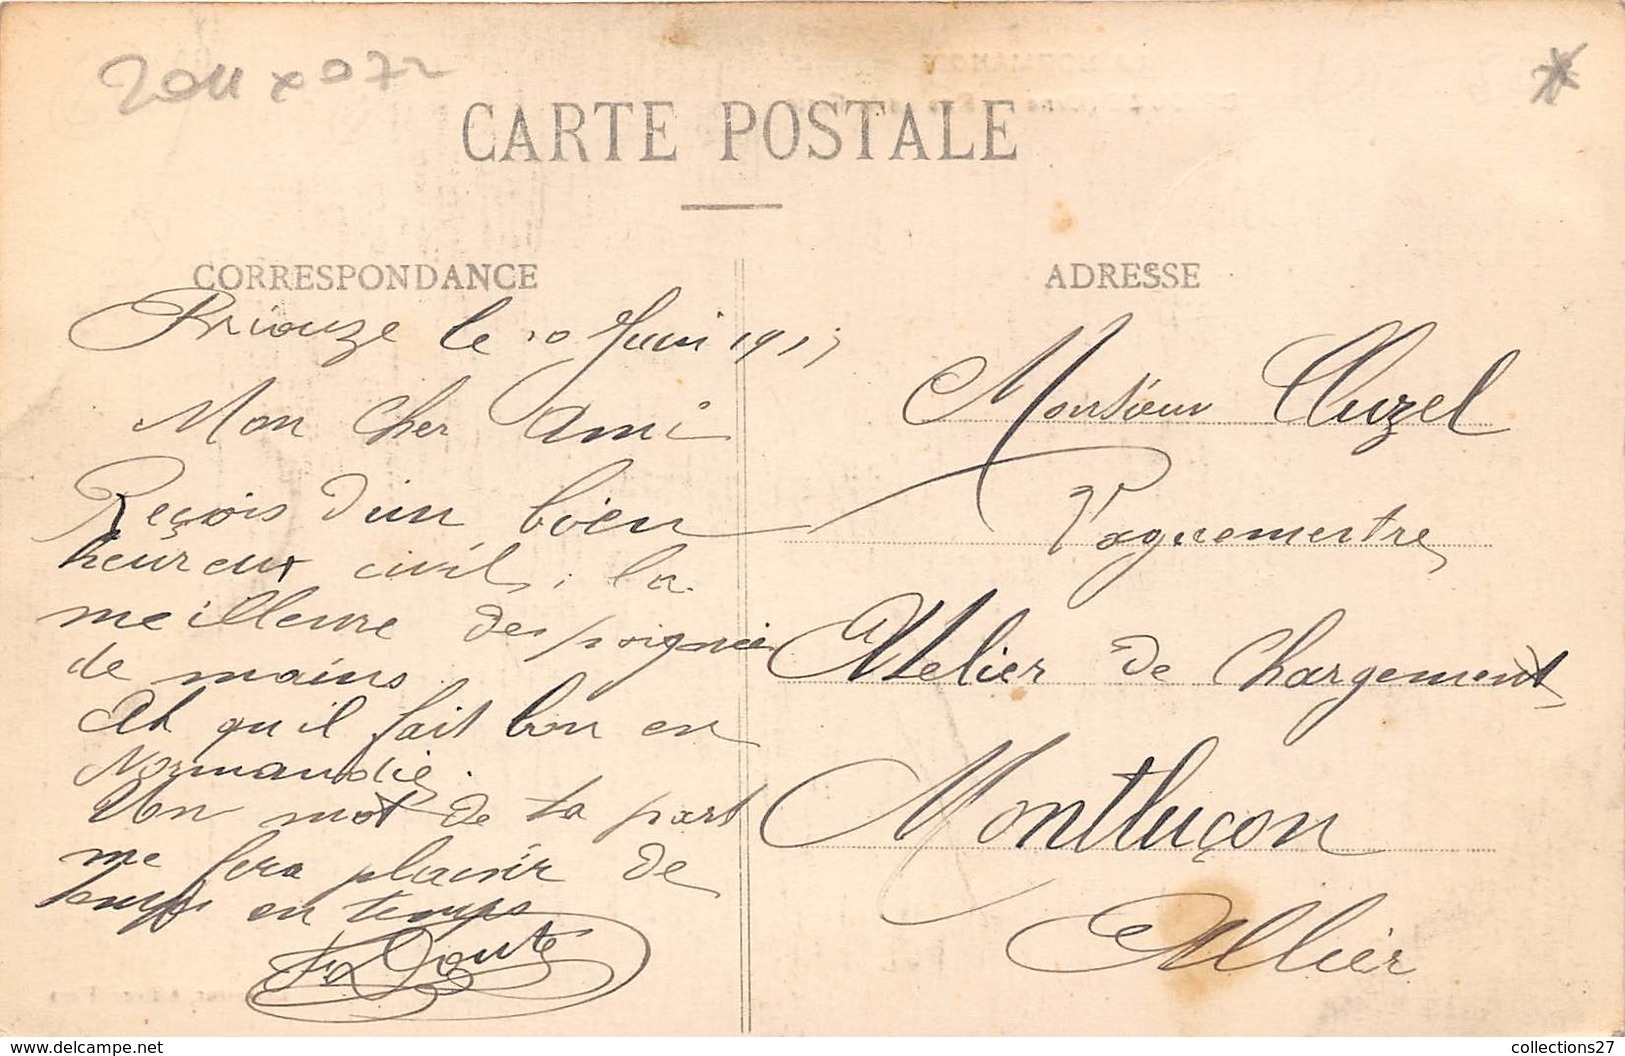 2011 x 072
CARTE POSTALE
CORRESPONDANCE
Briouze le 10 Juin 191
Mon cher Ami
Reçois d'un bien
heureux civil, la
meilleure des poignées
de mains.
Ah qu'il fait bon en
Normandie.
Un mot de ta part
me fera plaisir de
temps en temps
Doute
ADRESSE
Monsieur Cluzel
Vaguemestre
Atelier de Chargement
Montluçon
Allier
collections27
https://www.delcampe.net